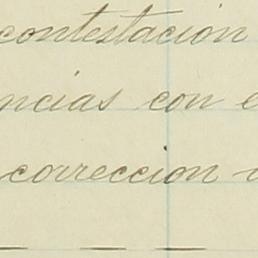 contestación
ncias con e
correccion